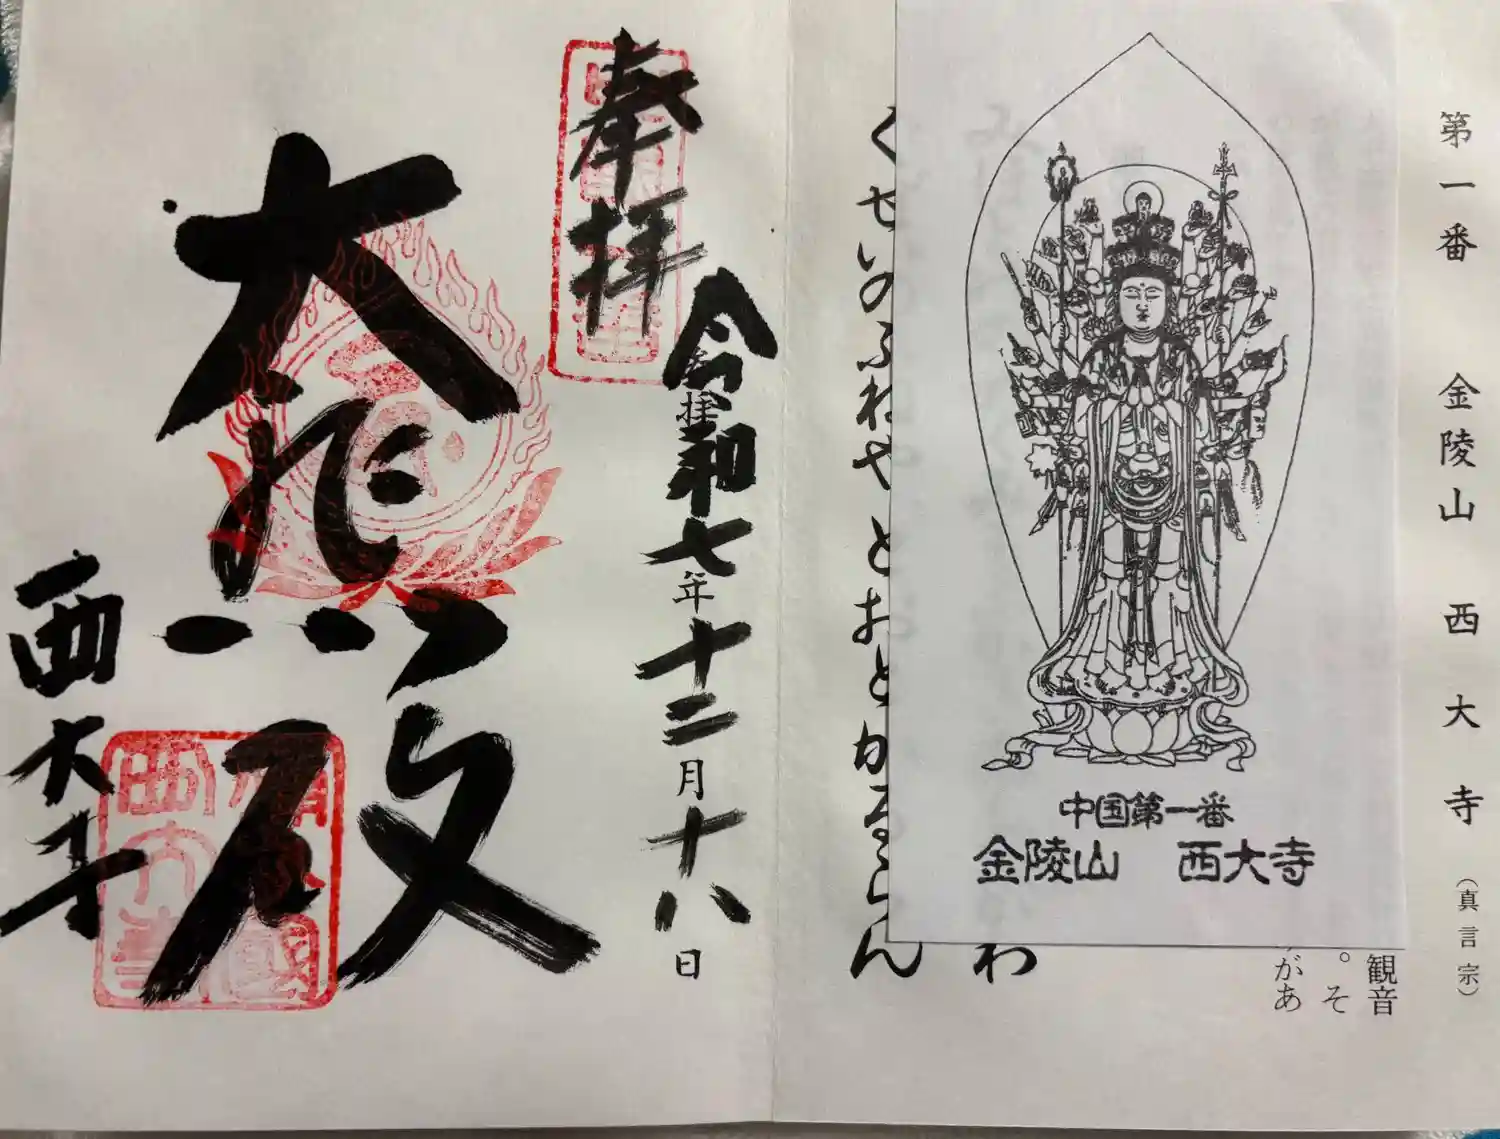 第一番 金陵山 西大寺 (真言宗)
観音
。そ
があ
中国第一番
金陵山 西大寺
わ
くせいのふねや とおとかるらん
奉拝
拝
令和七年十二月十八日
大悲殿
西大寺